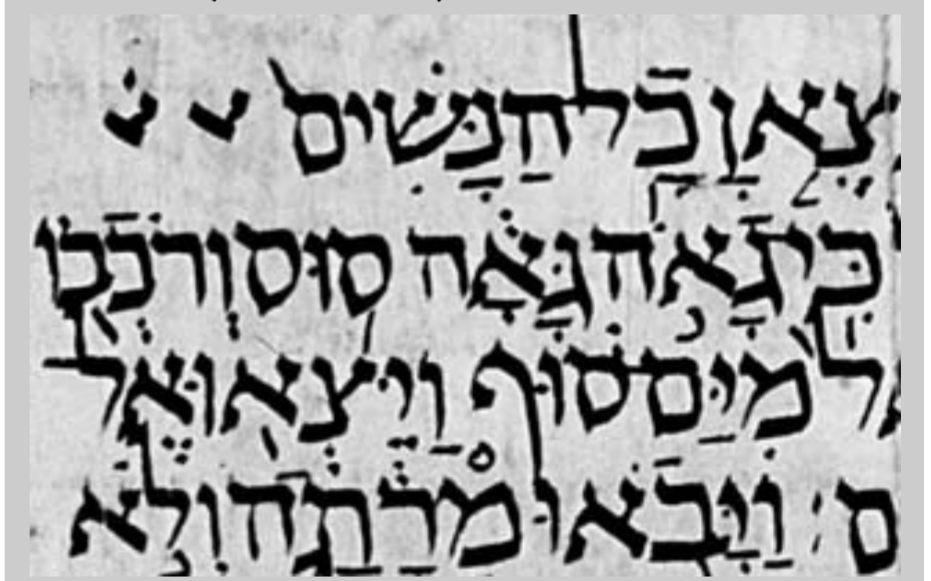 צֶאןָ כָל הַנָּשִׁים
כִּי גָאֹה גָּאָה סוּס וְרֹכְבוֹ
אֵל מִיַּם סוּף וַיֵּצְאוּ אֶל
ם׃ וַיָּבֹאוּ מָרָתָה וְלֹא